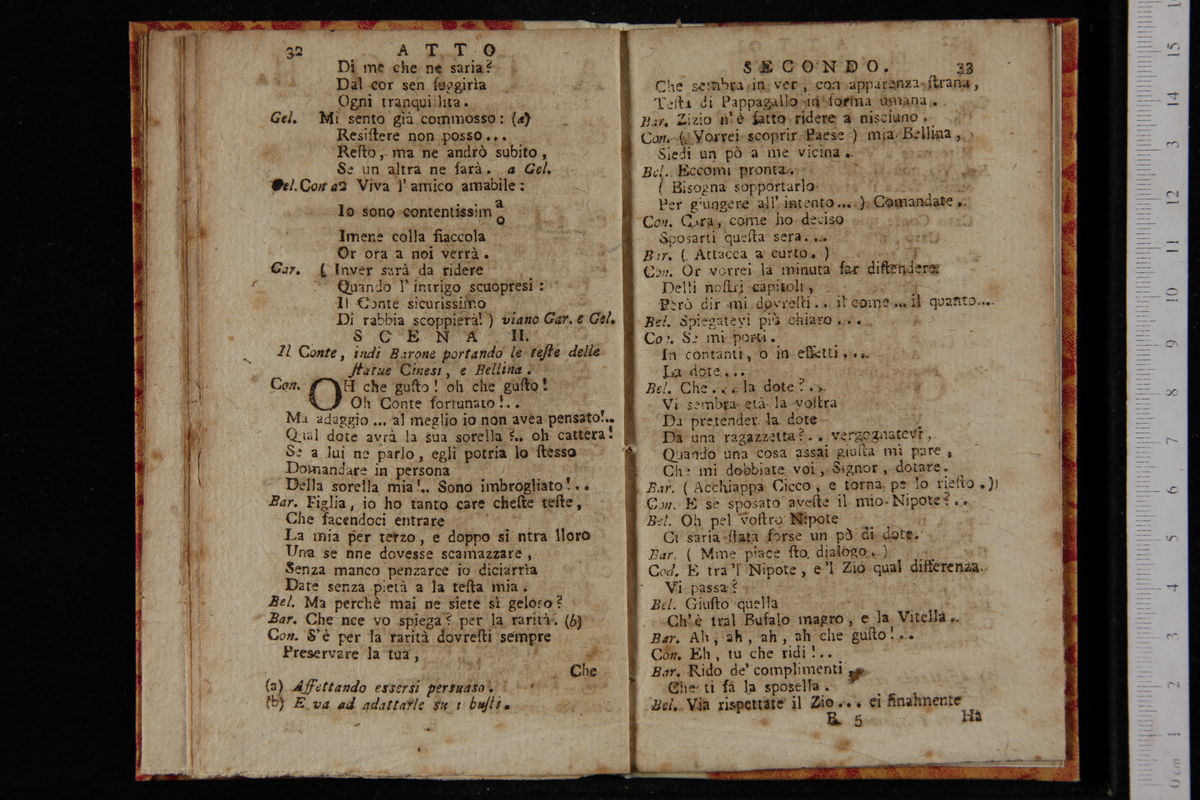 32 ATTO
Di me che ne saria?
Dal cor sen fuggirìa
Ogni tranquillita.
Gel. Mi sento già commosso: (a)
Resiſtere non posso...
Reſto, ma ne andrò subito,
Se un altra ne farà. a Gel.
Bel. Con a2 Viva l'amico amabile:
Io sono contentissim a
o
Imene colla fiaccola
Or ora a noi verrà.
Gar. ( Inver sarà da ridere
Quando l'intrigo scuopresi:
Il Conte sicurissimo
Di rabbia scoppierà! ) viano Gar. e Gel.
SCENA II.
Il Conte, indi Barone portando le teſte delle
ſtatue Cinesi, e Bellina.
Con. OH che guſto! oh che guſto!
Oh Conte fortunato!..
Ma adaggio... al meglio io non avea pensato!..
Qual dote avrà la sua sorella?.. oh cattera!
Se a lui ne parlo, egli potria lo ſtesso
Domandare in persona
Della sorella mia!.. Sono imbrogliato!..
Bar. Figlia, io ho tanto care cheſte teſte,
Che facendoci entrare
La mia per terzo, e doppo si ntra lloro
Una se nne dovesse scamazzare,
Senza manco penzarce io diciarrìa
Date senza pietà a la teſta mia.
Bel. Ma perchè mai ne siete sì geloso?
Bar. Che nce vo spiega? per la rarità. (b)
Con. S'è per la rarità dovreſti sempre
Preservare la tua,
Che
(a) Affettando essersi persuaso.
(b) E va ad adattarle su i buſti.
SECONDO. 33
Che sembra in ver, con apparenza ſtrana,
Teſta di Pappagallo in forma umana.
Bar. Zizio n'è fatto ridere a nisciuno.
Con. ( Vorrei scoprir Paese ) mia Bellina,
Siedi un pò a me vicina.
Bel. Eccomi pronta.
( Bisogna sopportarlo
Per giungere all'intento... ) Comandate.
Con. Cara, come ho deciso
Sposarti queſta sera...
Bar. ( Attacca a curto. )
Con. Or vorrei la minuta far diſtendere
Delli noſtri capitoli,
Però dir mi dovreſti.. il come... il quanto...
Bel. Spiegatevi più chiaro...
Con. Se mi porti.
In contanti, o in effetti...
La dote...
Bel. Che... la dote?..
Vi sembra età la voſtra
Da pretender la dote
Da una ragazzetta?.. vergognatevi,
Quando una cosa assai giuſta mi pare,
Che mi dobbiate voi, Signor, dotare.
Bar. ( Acchiappa Cicco, e torna pe lo rieſto. ))
Con. E se sposato aveſte il mio Nipote?..
Bel. Oh pel voſtro Nipote
Ci saria ſtata forse un pò di dote.
Bar. ( Mme piace ſto dialogo. )
Cod. E tra'l Nipote, e'l Zio qual differenza
Vi passa?
Bel. Giuſto quella
Ch'è tral Bufalo magro, e la Vitella.
Bar. Ah, ah, ah, ah che guſto!..
Con. Eh, tu che ridi!..
Bar. Rido de' complimenti,
Che ti fà la sposella.
Bel. Via rispettate il Zio... ei finalmente
B 5 Ha